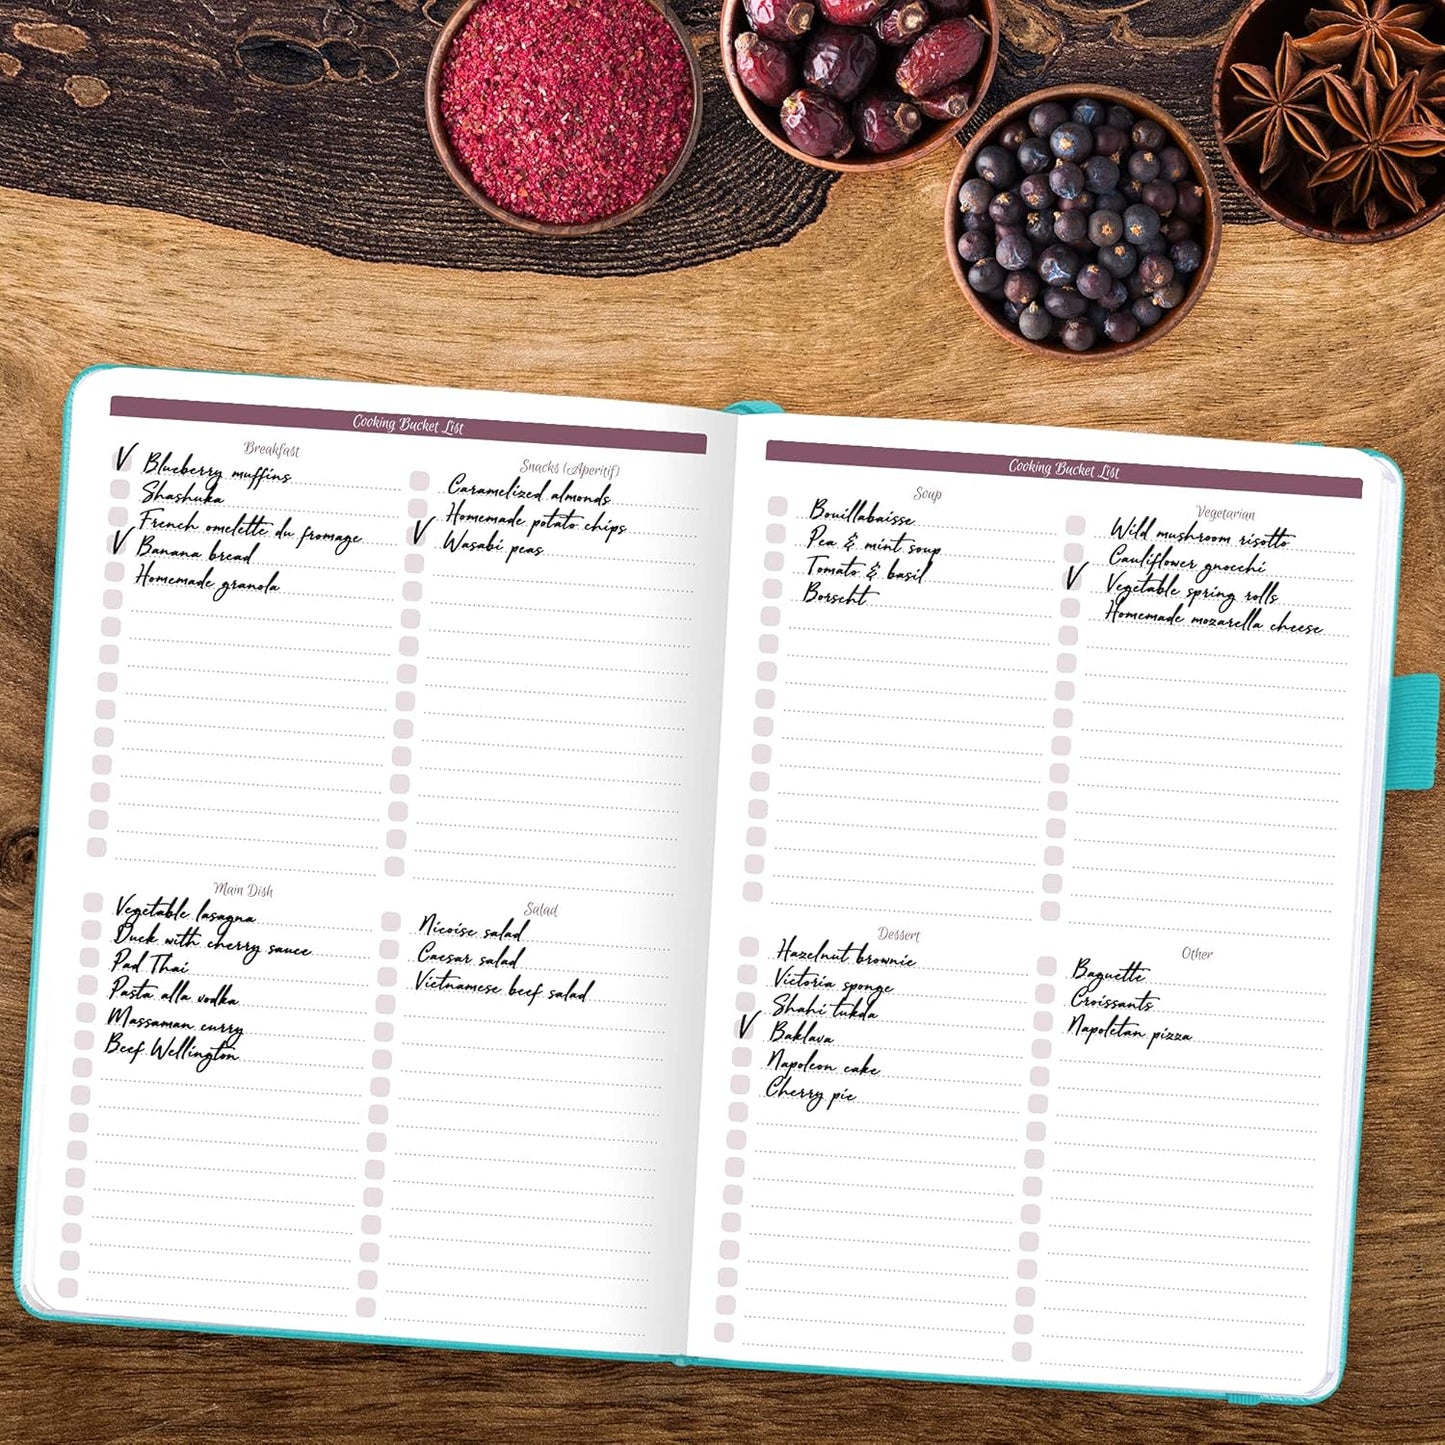 Cooking Bucket List
Breakfast
Blueberry muffins
Shashuka
French omelette du fromage
Banana bread
Homemade granola
Snacks (Aperitif)
Caramelized almonds
Homemade potato chips
Wasabi peas
Main Dish
Vegetable lasagna
Duck with cherry sauce
Pad Thai
Pasta alla vodka
Massaman curry
Beef Wellington
Salad
Nicoise salad
Caesar salad
Vietnamese beef salad
Cooking Bucket List
Soup
Bouillabaisse
Pea & mint soup
Tomato & basil
Borscht
Vegetarian
Wild mushroom risotto
Cauliflower gnocchi
Vegetable spring rolls
Homemade mozarella cheese
Dessert
Hazelnut brownie
Victoria sponge
Shahi tukda
Baklava
Napoleon cake
Cherry pie
Other
Baguette
Croissants
Napoletan pizza